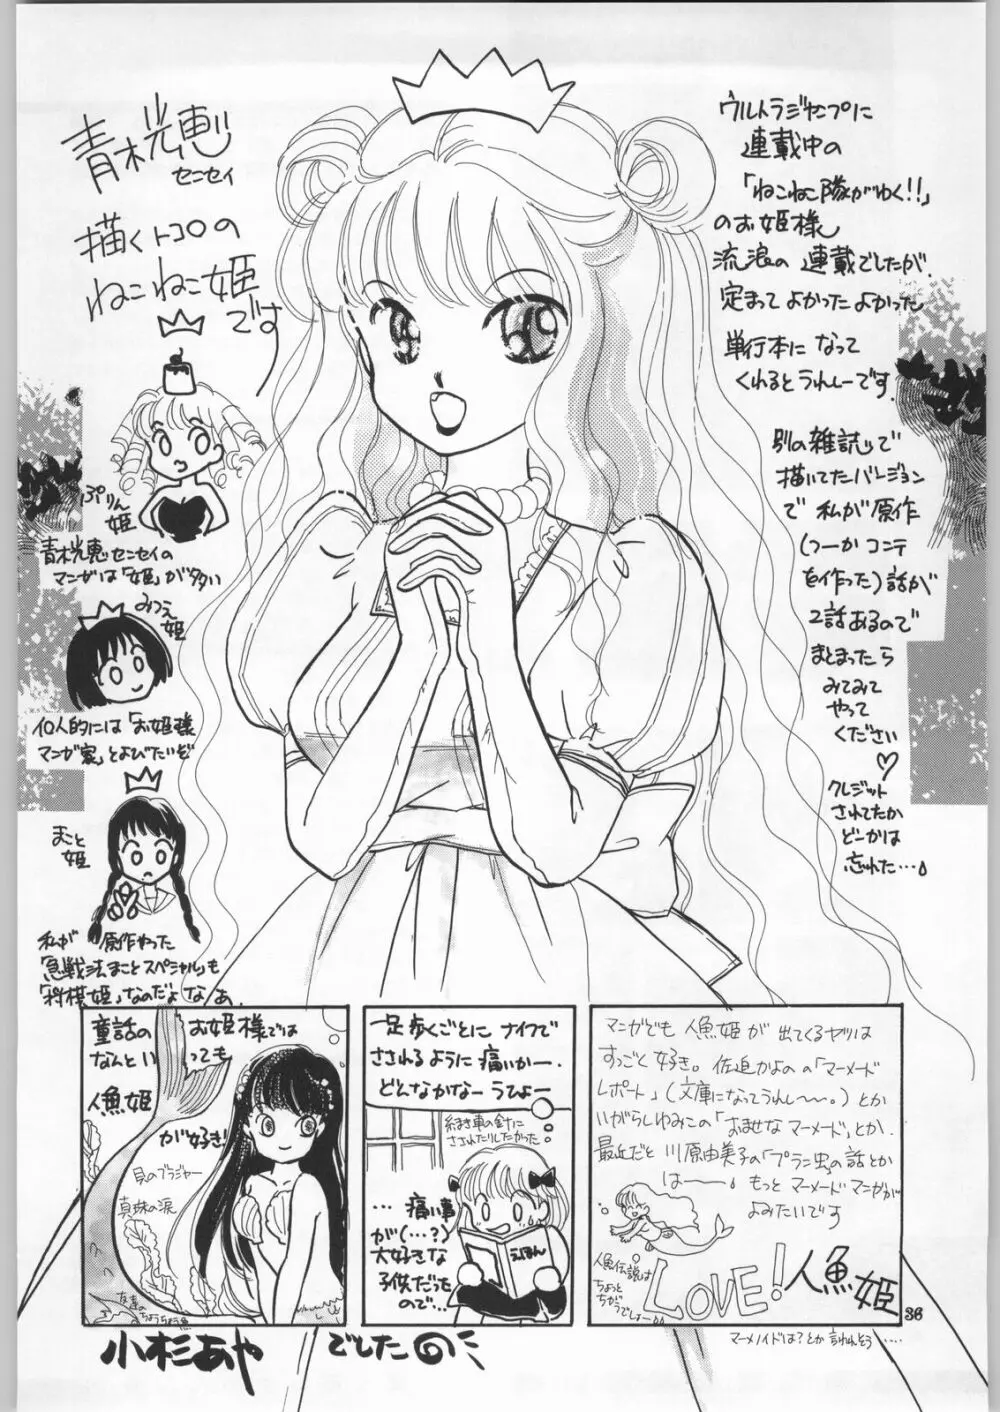 青木光恵
センセイ
描くトコロの
ねこねこ姫
です
ウルトラジャンプに
連載中の
「ねこねこ隊がゆく!!」
のお姫様
流浪の連載でしたが、
定まってよかったよかった
単行本になって
くれるとうれしーです。
別の雑誌で
描いてたバージョン
で私が原作
(つーかコンテ
を作った)話が
2話あるので
まとまったら
みてみて
やって
ください
♡
クレジット
されてたか
どーかは
忘れた…
ぷりん
姫
青木光恵センセイの
マンガは「姫」が多い
みつえ
姫
個人的には「お姫様
マンガ家」とよびたいぞ
まこと
姫
私が原作やった
「急戦法まことスペシャル」も
「将棋姫」なのだよなあ。
童話のお姫様では
なんといっても
人魚姫
が好き!
貝のブラジャー
真珠の涙
友達の
ちょうちょう魚
一足歩くごとにナイフで
さされるように痛いかー.
どんなかなーうひょー
糸まき車の針に
さされたりしたかった。
…痛い事
が(…?)
大好きな
子供だった
ので…
えほん
マンガでも人魚姫が出てくるヤツは
すっごく好き。佐迫かよのの「マーメード
レポート」(文庫になってうれし〜〜。)とか
いがらしゆみこの「おませなマーメード」とか.
最近だと川原由美子の「プラン虫」の話とか
はーー。もっとマーメードマンガが
よみたいです
人魚伝説は
ちょっと
ちがうでしょー
LOVE!人魚姫
36
マーメノイドは?とか言われそう……
小杉あや でしたの